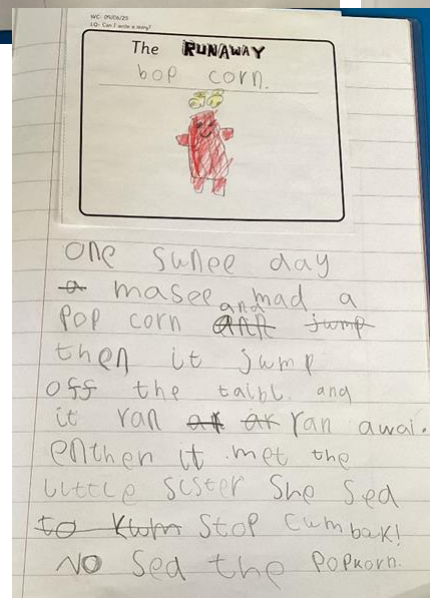 WC: 09/06/25
LQ: Can I write a story?
The RUNAWAY
bop corn.
one sunee day
a masee mad a
and
pop corn ann jump
then it jump
off the taibl. and
it ran at ar ran awai.
enther it met the
little sister She Sed
to kum Stop cum bak!
NO Sed the popkorn.